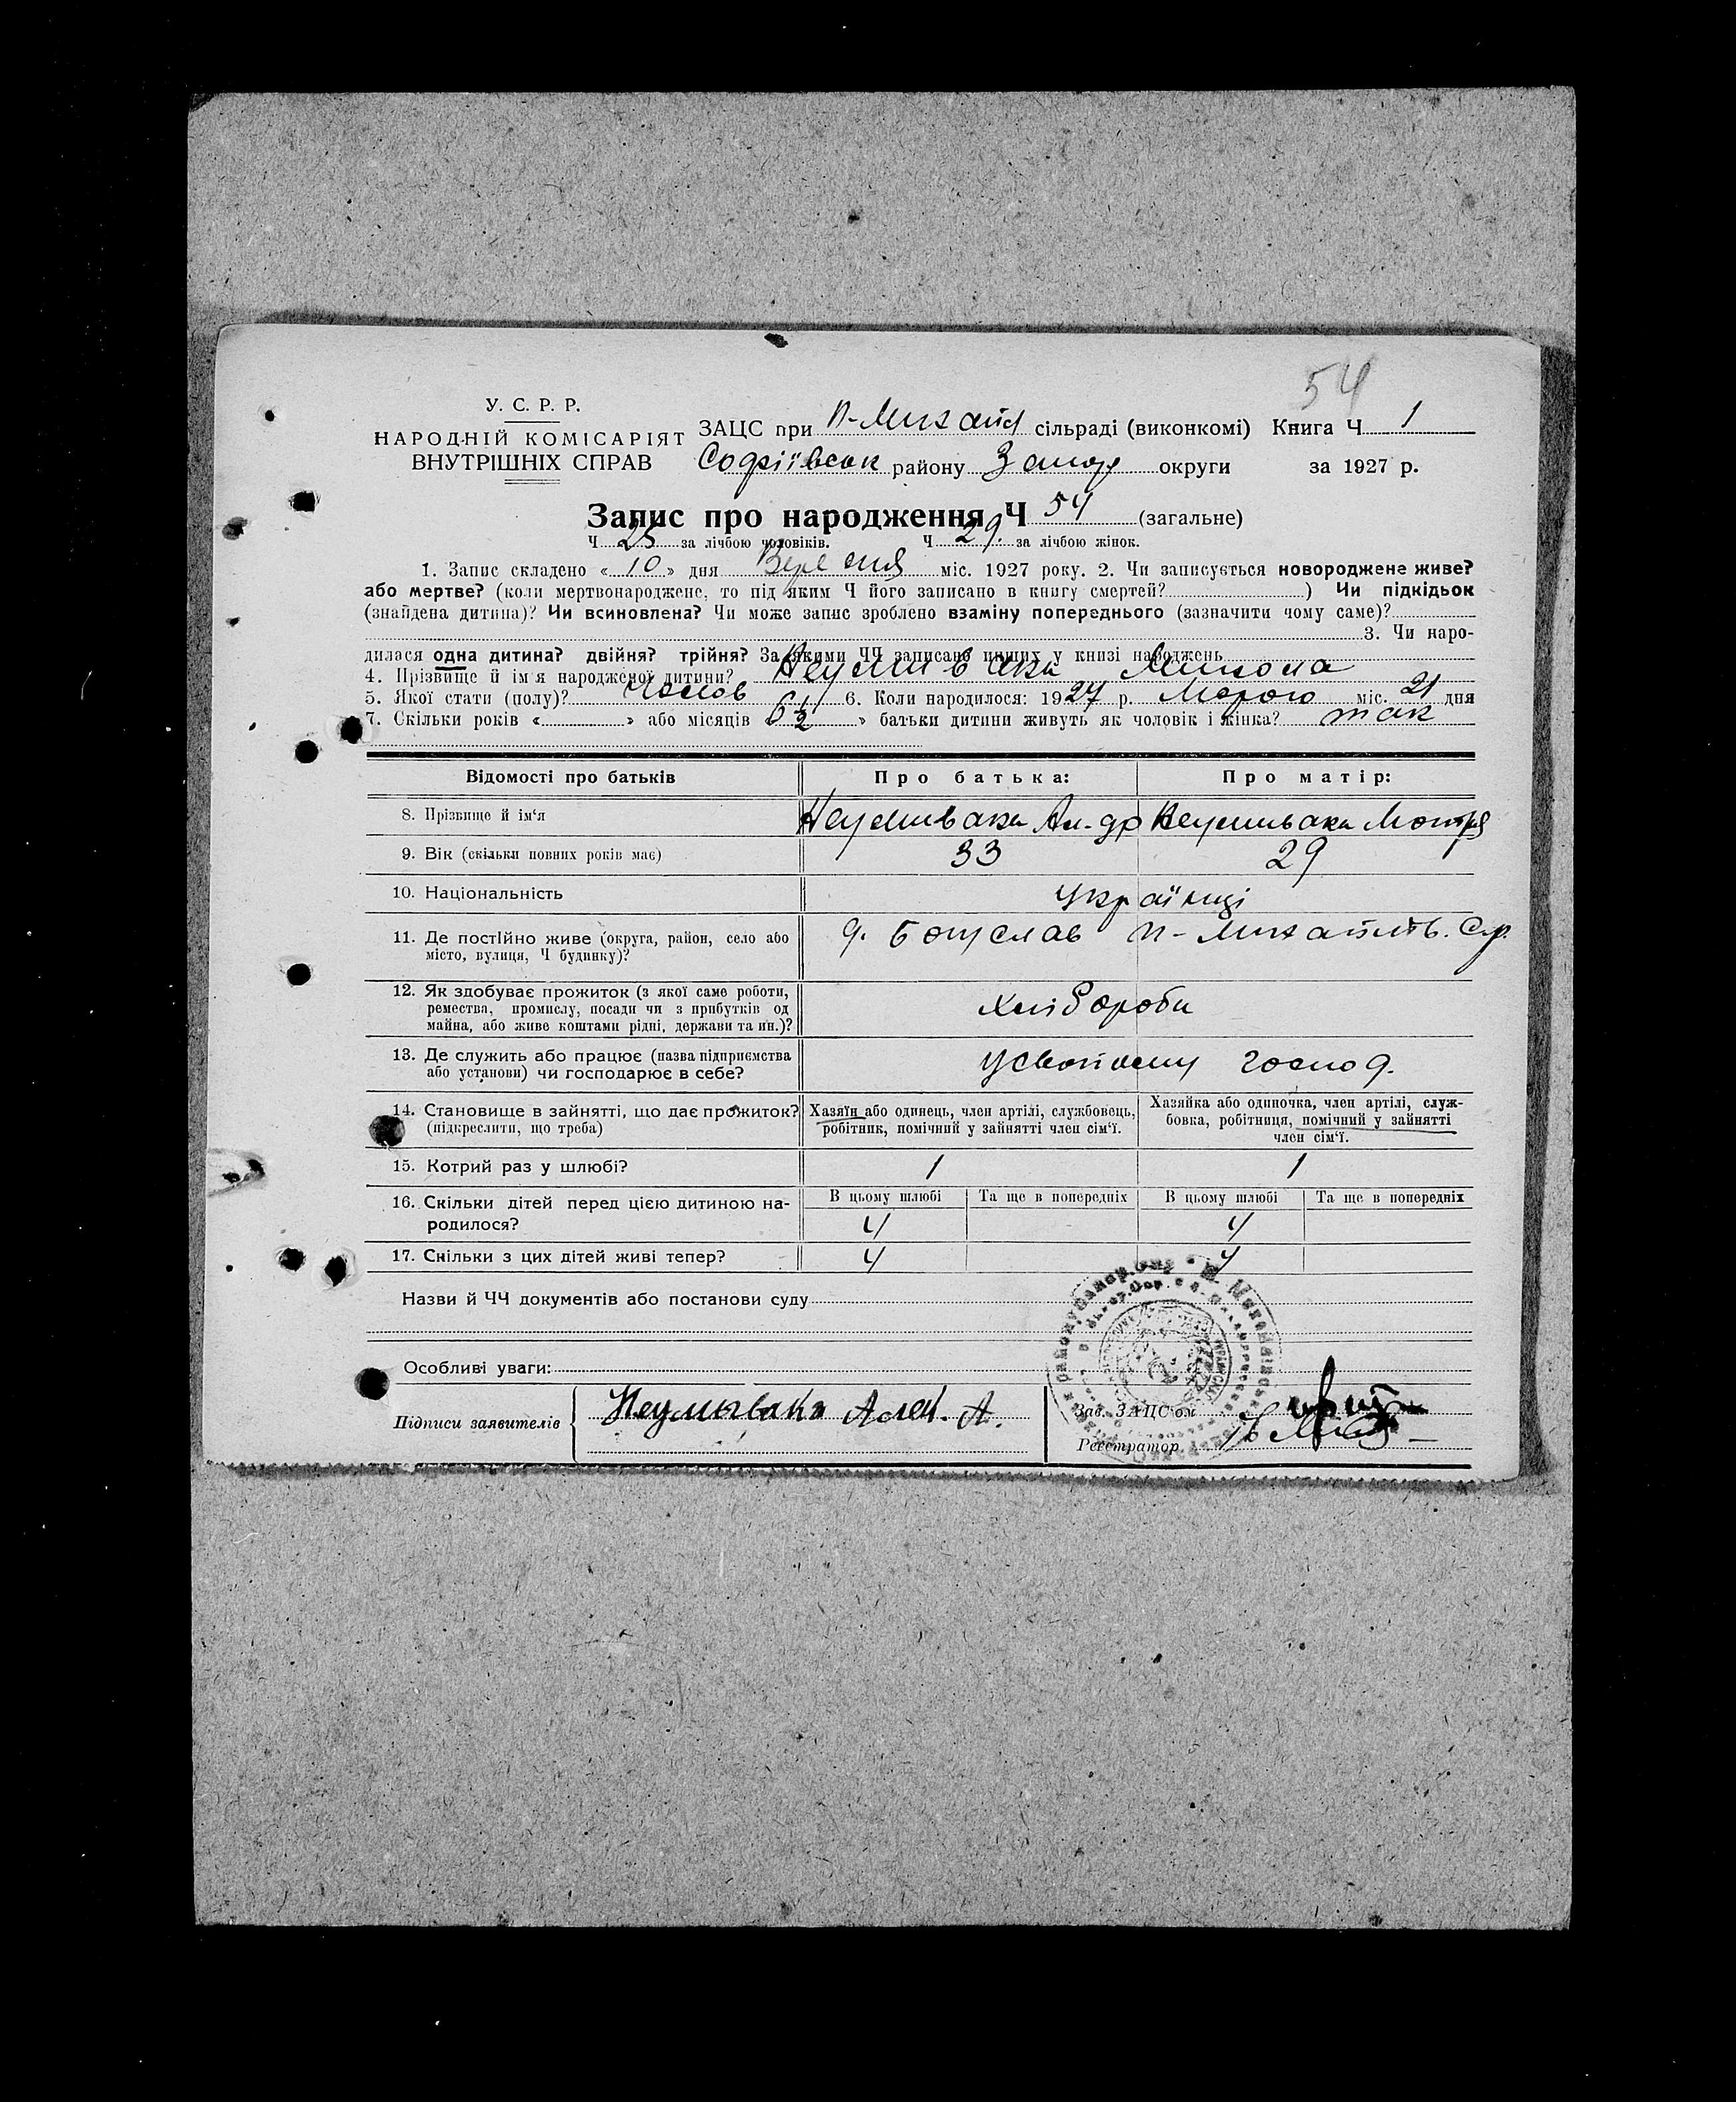 54
У. С. Р. Р.
НАРОДНІЙ КОМІСАРІЯТ
ВНУТРІШНІХ СПРАВ
ЗАЦС при Н-Михайл сільраді (виконкомі) Книга Ч 1
Софіївськ району Запор округи за 1927 р.
Запис про народження Ч 54 (загальне)
Ч 25 за лічбою чоловіків. Ч 29. за лічбою жінок.
1. Запис складено « 10 » дня Вересня міс. 1927 року. 2. Чи записується новороджене живе?
або мертве? (коли мертвонароджене, то під яким Ч його записано в книгу смертей? ) Чи підкідьок
(знайдена дитина)? Чи всиновлена? Чи може запис зроблено взаміну попереднього (зазначити чому саме)?
3. Чи наро-
дилася одна дитина? двійня? трійня? За якими ЧЧ записано инших у книзі народжень
4. Прізвище й ім'я народженої дитини? Неумивака Микола
5. Якої стати (полу)? Чолов 6. Коли народилося: 1927 р. міс. 21 дня
7. Скільки років « » або місяців « 6½ » батьки дитини живуть як чоловік і жінка? так
Відомості про батьків Про батька: Про матір:
8. Прізвище й ім'я Неумивака Ал-др Неумивака Мотря
9. Вік (скільки повних років має) 33 29
10. Національність Українці
11. Де постійно живе (округа, район, село або
місто, вулиця, Ч будинку)? Богуслав Н-Михайлів. С.р.
12. Як здобуває прожиток (з якої саме роботи,
ремества, промислу, посади чи з прибутків од
майна, або живе коштами рідні, держави та ин.)? Хлібороби
13. Де служить або працює (назва підприємства
або установи) чи господарює в себе? У своїому господ.
14. Становище в зайнятті, що дає прожиток?
(підкреслити, що треба)
Хазяїн або одинець, член артілі, службовець,
робітник, помічний у зайнятті член сім'ї.
Хазяйка або одиночка, член артілі, служ-
бовка, робітниця, помічний у зайнятті
член сім'ї.
15. Котрий раз у шлюбі? 1 1
16. Скільки дітей перед цією дитиною на-
родилося?
В цьому шлюбі Та ще в попередніх В цьому шлюбі Та ще в попередніх
4 4
17. Скільки з цих дітей живі тепер? 4 4
Назви й ЧЧ документів або постанови суду
Особливі уваги:
Підписи заявителів Неумывака Алек. А.
Зав. ЗАЦС'ом
Реєстратор